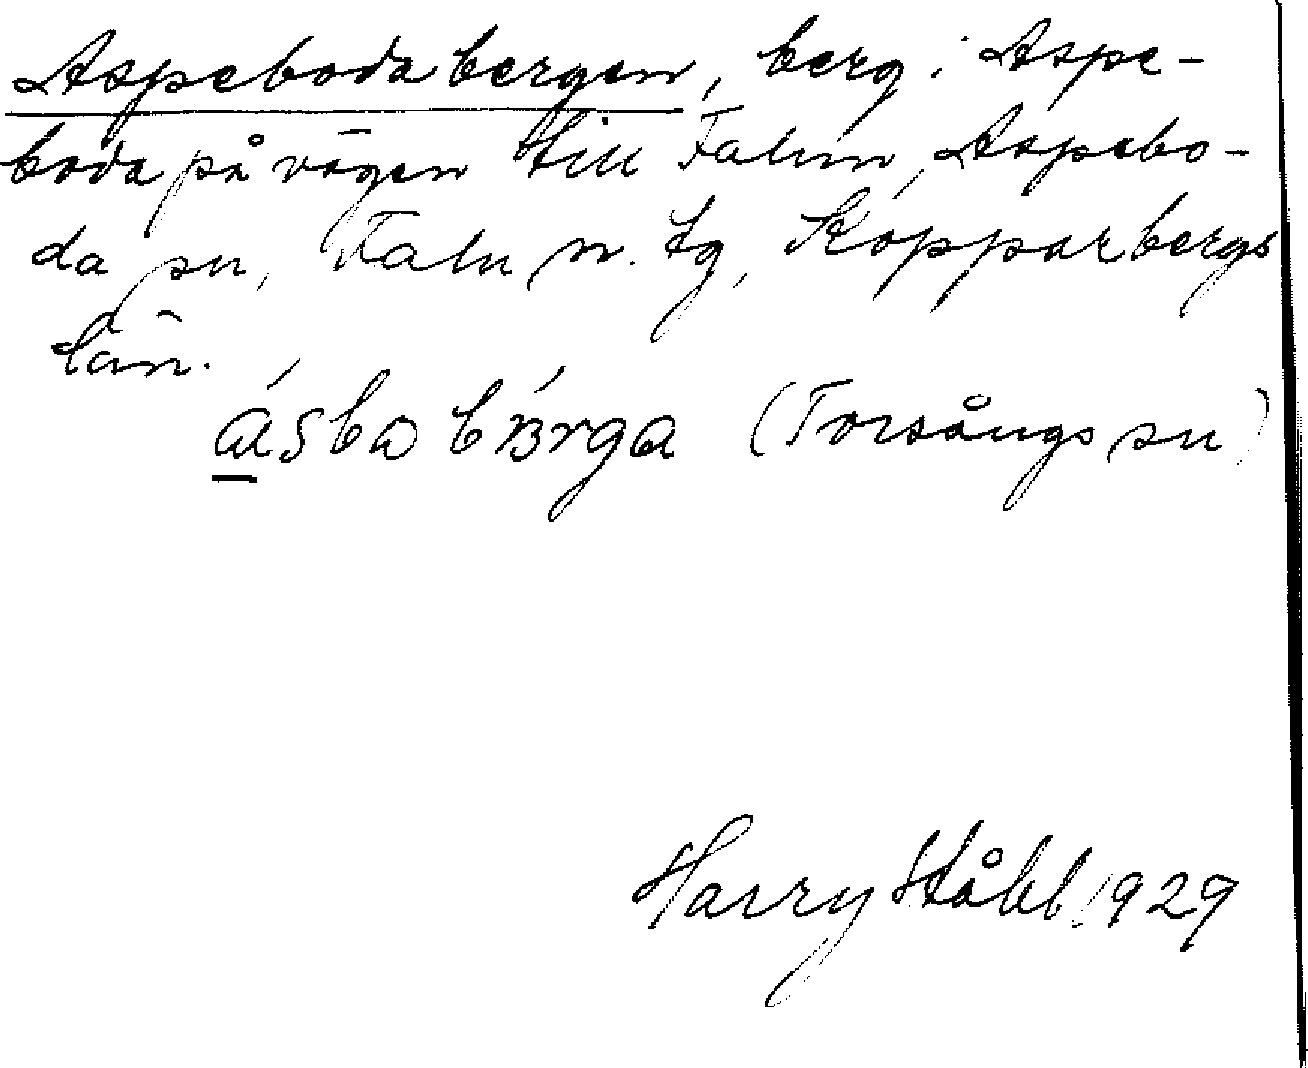 Aspeboda bergen, berg i Aspe-
boda på vägen till Falun, Aspebo-
da sn, Falu n. tg, Kopparbergs
län.
(Torsångs sn)
Harry Ståhl 1929